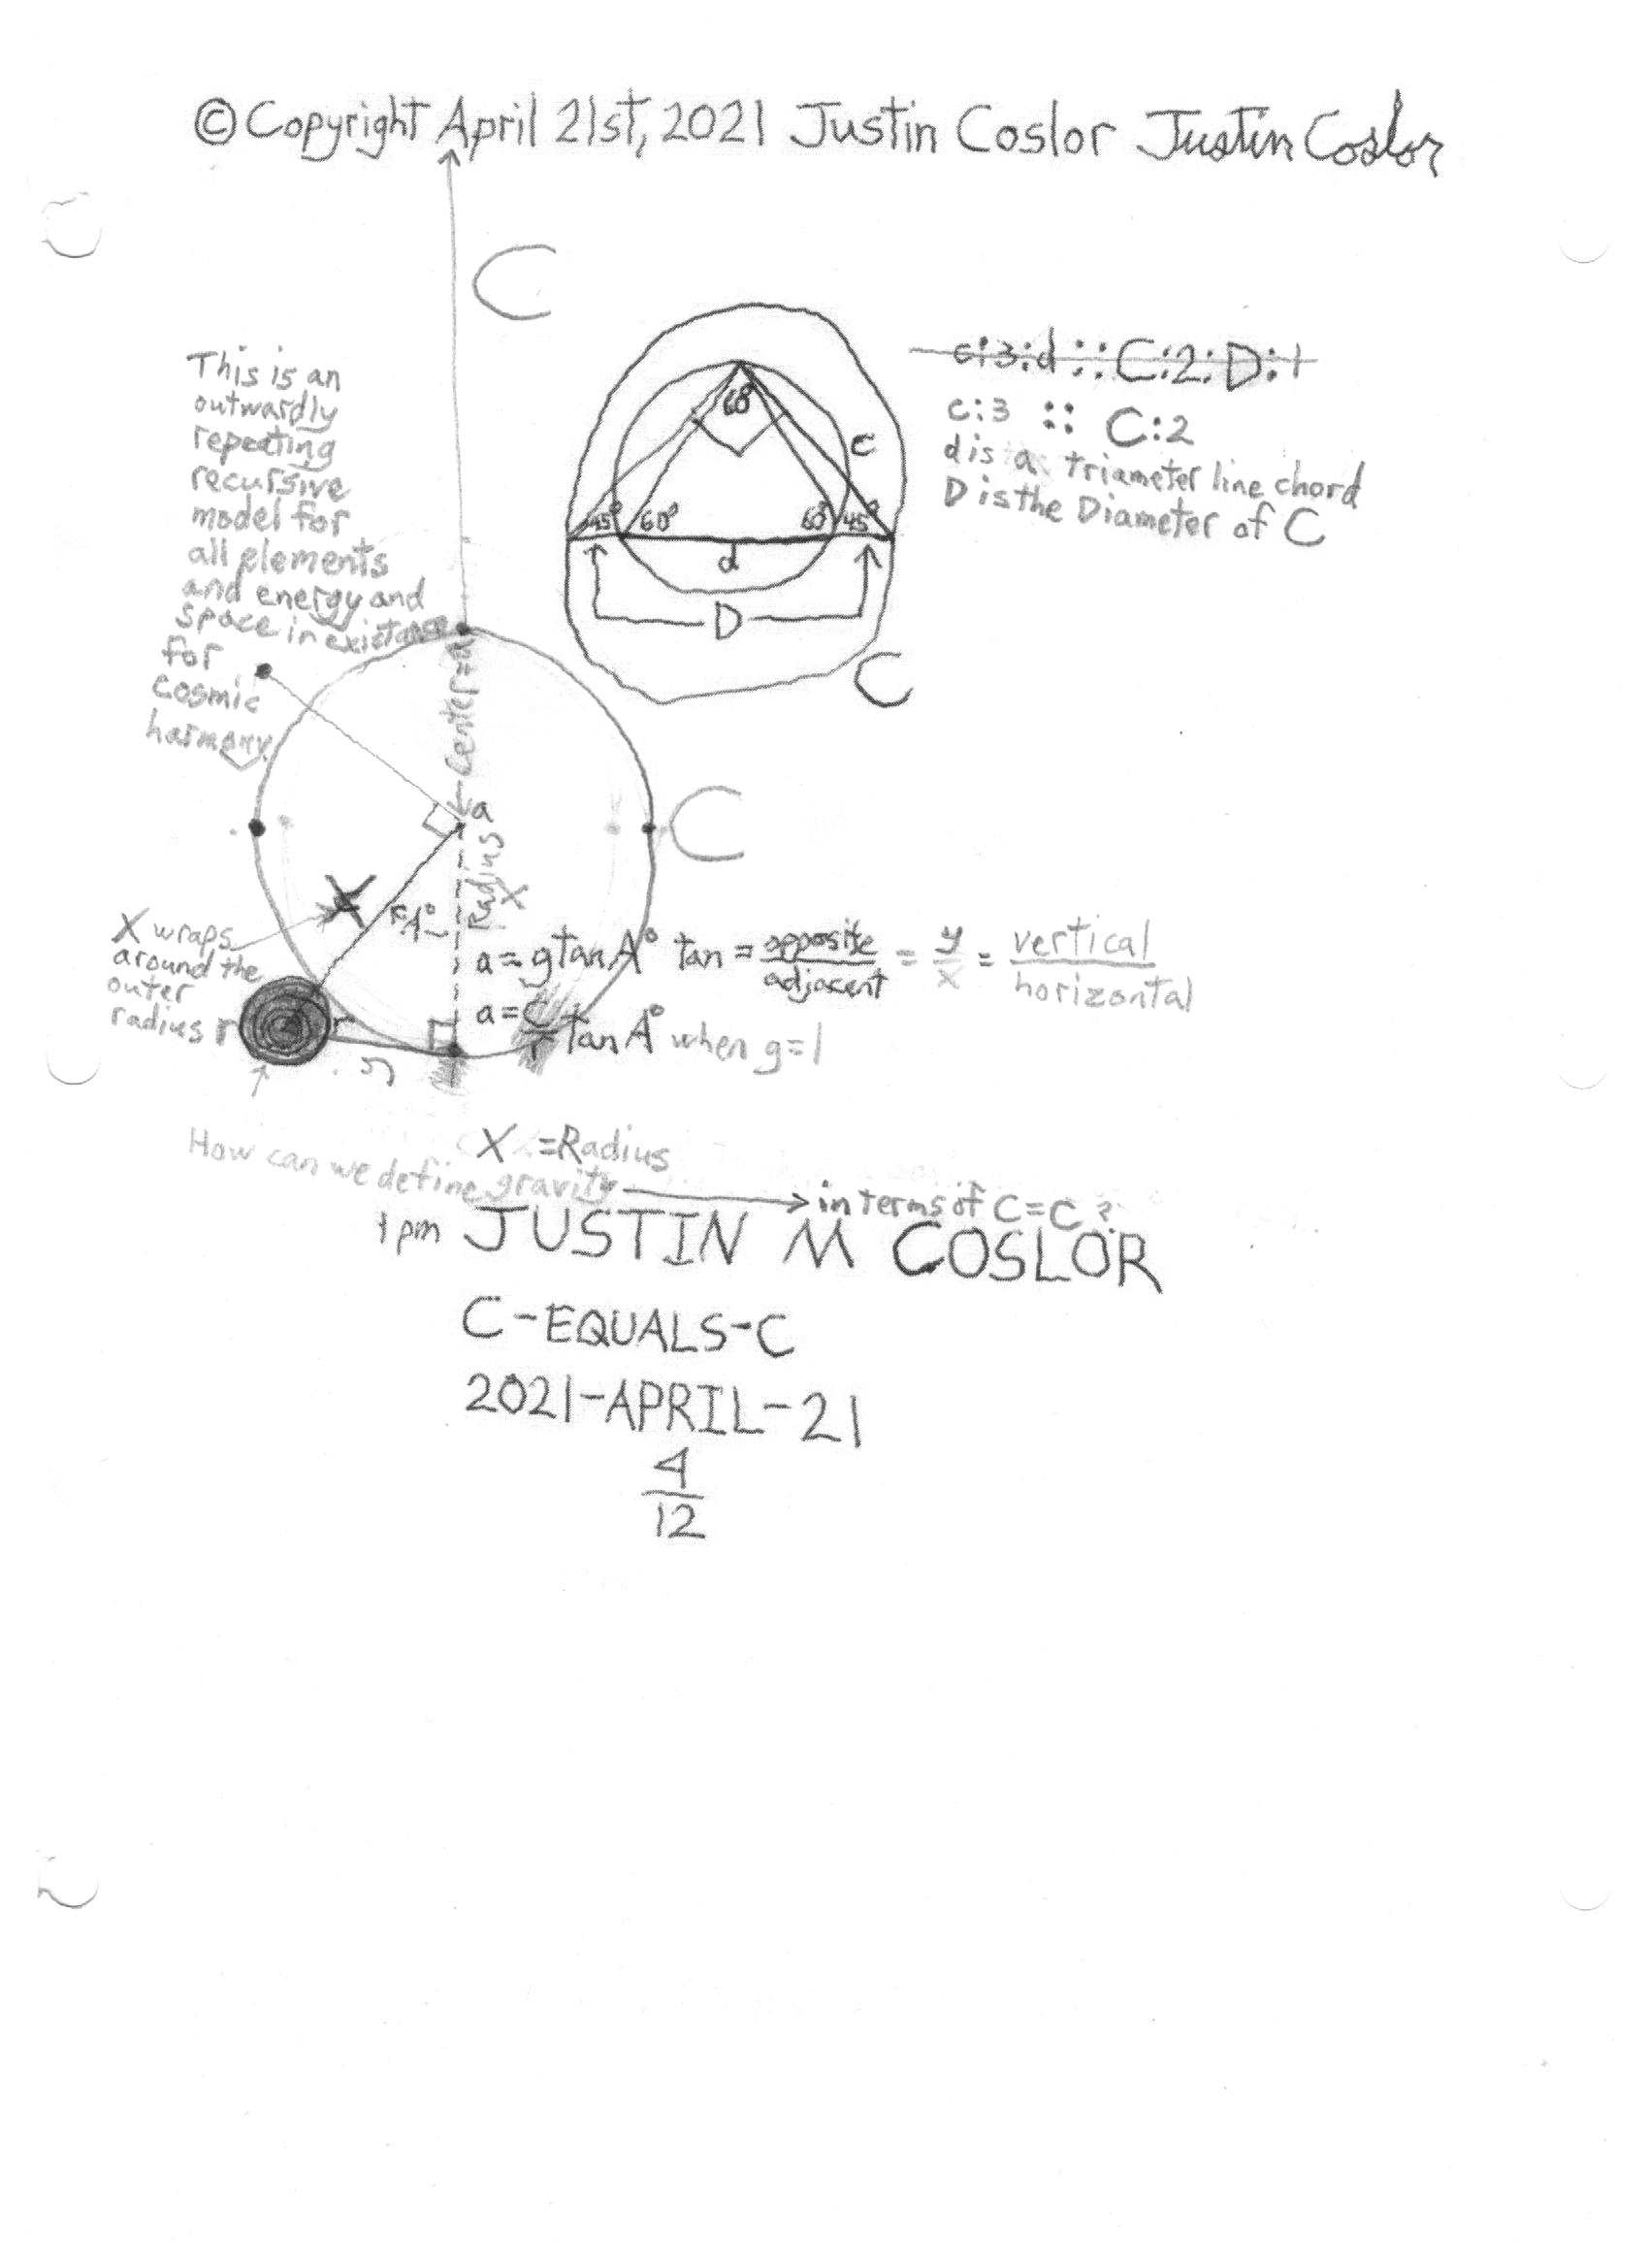 © Copyright April 21st, 2021 Justin Coslor Justin Coslor
C
This is an
outwardly
repeating
recursive
model for
all elements
and energy and
space in existance
for
cosmic
harmony.
60°
45° 60° 60° 45°
d
D
c
C
c:3:d :: C:2:D:1
c:3 :: C:2
d is a triameter line chord
D is the Diameter of C
Center=a
a
Radius
X
C
X
A°
X wraps
around the
outer
radius r
r
a = g tan A° tan = opposite/adjacent = y/x = vertical/horizontal
a = C/r tan A° when g=1
X = Radius
How can we define gravity → in terms of C=C?
1pm JUSTIN M COSLOR
C-EQUALS-C
2021-APRIL-21
4
12